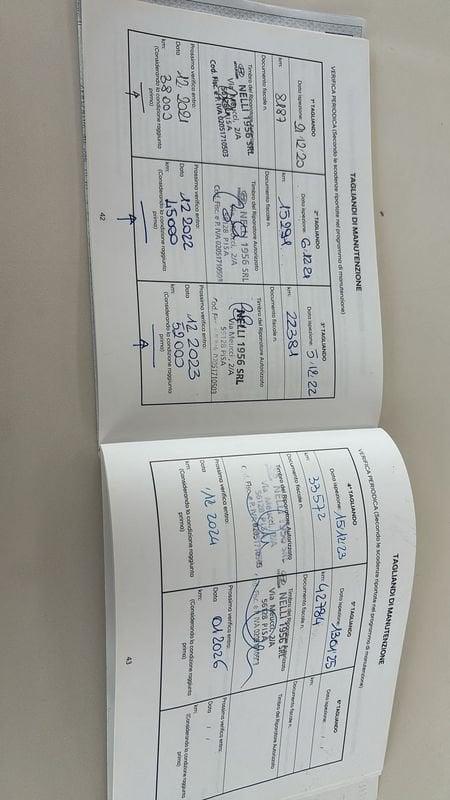 TAGLIANDI DI MANUTENZIONE
VERIFICA PERIODICA (Secondo le scadenze riportate nel programma di manutenzione)
1° TAGLIANDO
Data ispezione: 9.12.20
km: 8187
Documento fiscale n.
Timbro del Riparatore Autorizzato
NELLI 1956 SRL
Via Meucci, 2/A
PISA
Cod. Fisc. e P. IVA 02051710503
Prossima verifica entro:
Data 12.2021
km: 38000
(Considerando la condizione raggiunta prima)
2° TAGLIANDO
Data ispezione: 6.12.21
km: 15291
Documento fiscale n.
Timbro del Riparatore Autorizzato
NELLI 1956 SRL
Via Meucci, 2/A
56128 PISA
Cod. Fisc. e P. IVA 02051710503
Prossima verifica entro:
Data 12 2022
km: 45000
(Considerando la condizione raggiunta prima)
3° TAGLIANDO
Data ispezione: 5.12.22
km: 22381
Documento fiscale n.
Timbro del Riparatore Autorizzato
NELLI 1956 SRL
Via Meucci, 2/A
56128 PISA
Prossima verifica entro:
Data 12 2023
(Considerando la condizione raggiunta prima)
42
TAGLIANDI DI MANUTENZIONE
VERIFICA PERIODICA (Secondo le scadenze riportate nel programma di manutenzione)
4° TAGLIANDO
Data ispezione: 15/12/23
km: 33572
Documento fiscale n.
Timbro del Riparatore Autorizzato
Prossima verifica entro:
Data 12 2024
km:
(Considerando la condizione raggiunta prima)
5° TAGLIANDO
Data ispezione: 13/01/25
km: 42784
Documento fiscale n.
Timbro del Riparatore Autorizzato
NELLI 1956 SRL
Via Meucci, 2/A
56128 PISA
Prossima verifica entro:
Data 01 2026
km:
(Considerando la condizione raggiunta prima)
6° TAGLIANDO
Data ispezione:
km:
Documento fiscale n.
Timbro del Riparatore Autorizzato
Prossima verifica entro:
Data
km:
(Considerando la condizione raggiunta prima)
43